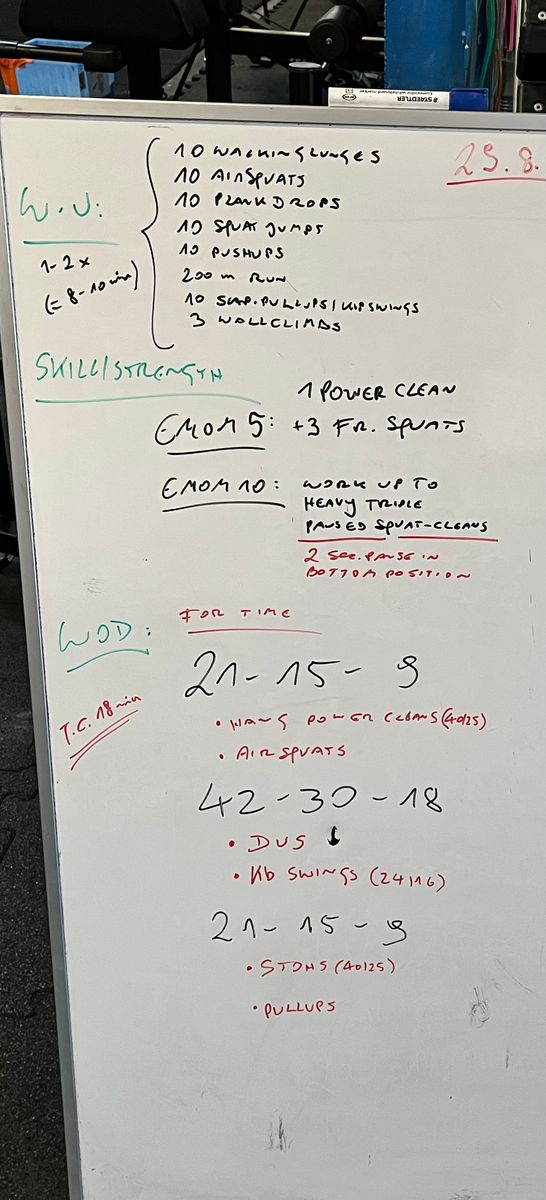 STAEDTLER
29.8.
W.U:
1-2x
(= 8-10min)
10 WALKINGLUNGES
10 AIRSQUATS
10 PLANKDROPS
10 SQUAT JUMPS
10 PUSHUPS
200 m RUN
10 SCAP.PULLUPS/KIPSWINGS
3 WALLCLIMBS
SKILL/STRENGTH
1 POWER CLEAN
EMOM 5: +3 FR. SQUATS
EMOM 10: WORK UP TO
HEAVY TRIPLE
PAUSED SQUAT-CLEANS
2 SEC. PAUSE IN
BOTTOM POSITION
WOD: FOR TIME
T.C. 18min
21-15-9
• HANG POWER CLEANS (40/25)
• AIRSQUATS
42-30-18
• DUS
• KB SWINGS (24/16)
21-15-9
• STOHS (40/25)
• PULLUPS